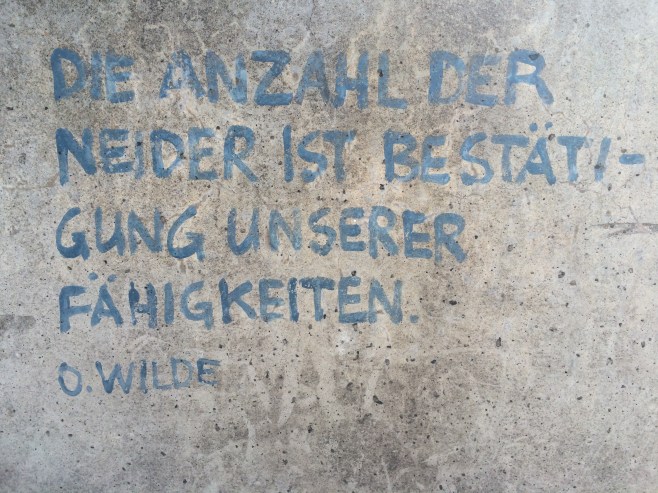 DIE ANZAHL DER
NEIDER IST BESTÄTI-
GUNG UNSERER
FÄHIGKEITEN.
O. WILDE